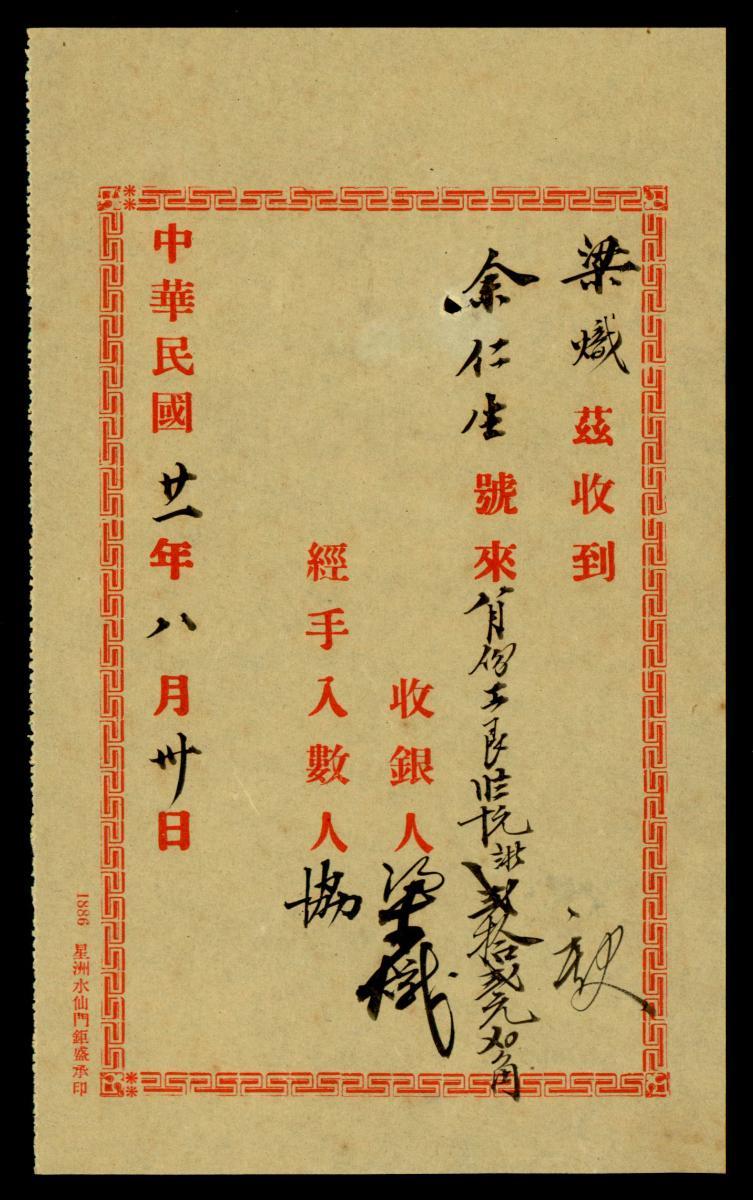 梁熾茲收到
余仁生號來八月份工艮 貳拾貳元 角
收銀人梁熾
經手入數人協
中華民國廿一年八月卅日
1886 星洲水仙門鉅盛承印